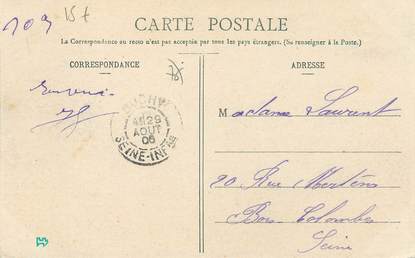 109 15t
CARTE POSTALE
La Correspondance au recto n'est pas acceptée par tous les pays étrangers. (Se renseigner à la Poste.)
CORRESPONDANCE
ADRESSE
Souvenir
BUCHY
29
AOUT
06
SEINE-INFRE
Madame Laurent
20 Rue Mertens
Bois Colombes
Seine